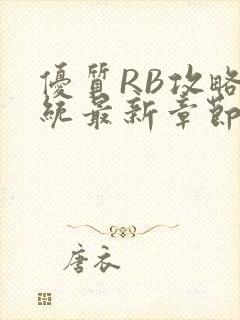 優質RB攻略
統最新章節
唐衣